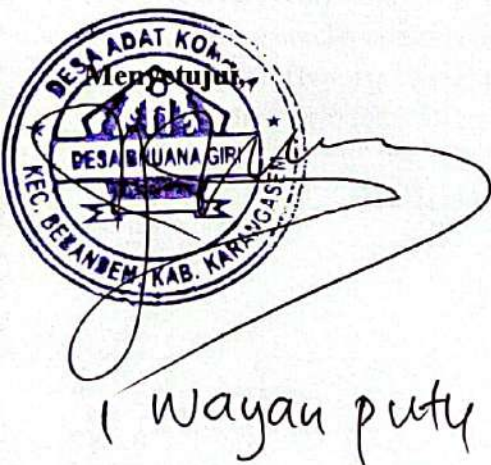 DESA ADAT
Menyetujui,
DESA BHUANA GIRI
KEC. BEBANDEM, KAB. KARANGASEM
I Wayan putu